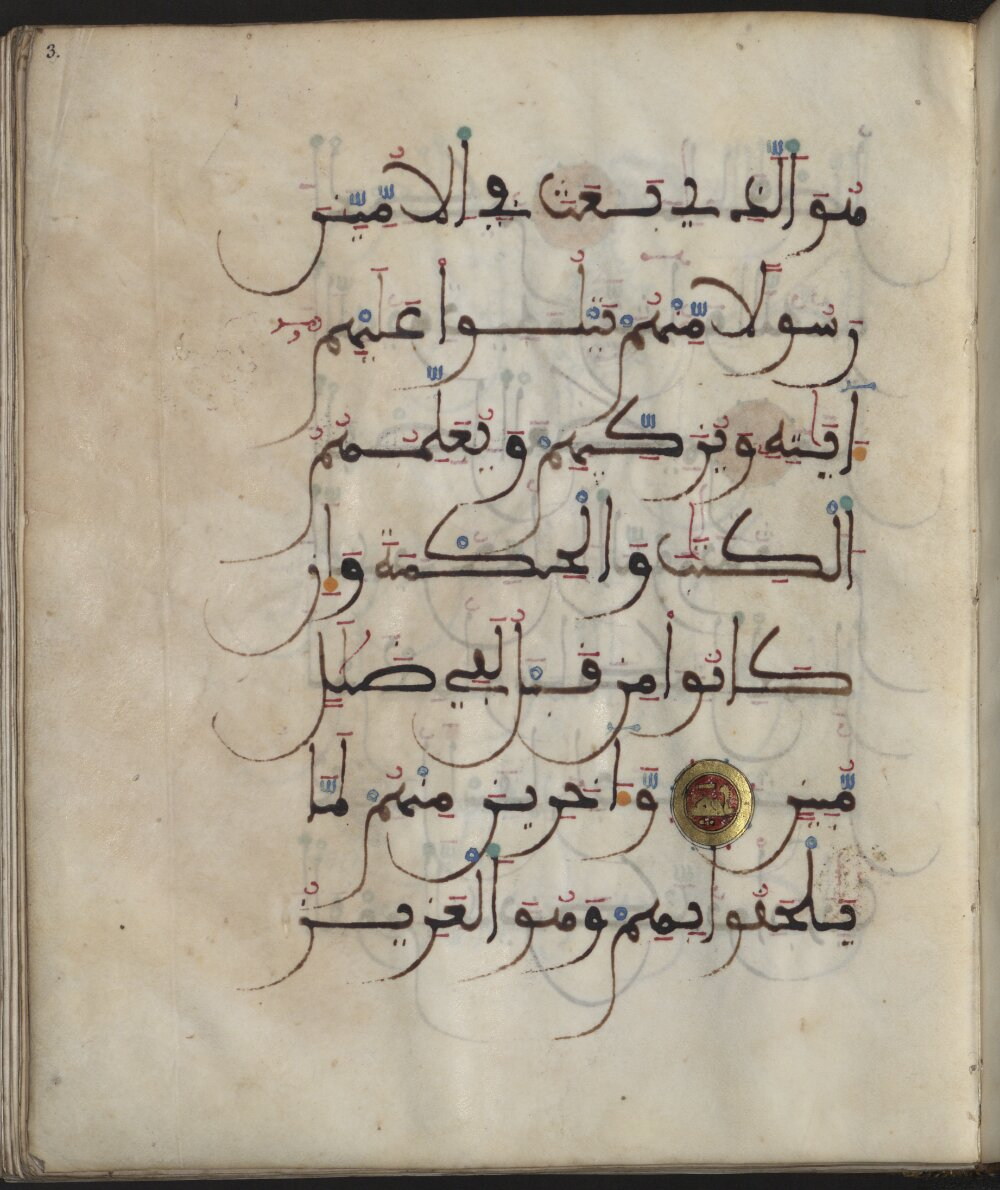 3.
هُوَ ٱلَّذِے بَعَثَ فِے ٱلُامِّيِّـۧنَ
رَسُولًا مِّنْهُمْ يَتْلُوا۟ عَلَيْهِمُۥٓ
ءَايَٰتِهِۦ وَيُزَكِّيهِمْ وَيُعَلِّمُهُمُ
ٱلْكِتَٰبَ وَٱلْحِكْمَةَ وَإِن
كَانُوا۟ مِن قَبْلُ لَفِے ضَلَٰلٍ
مُّبِينٍ وَءَاخَرِينَ مِنْهُمْ لَمَّا
يَلْحَقُوا۟ بِهِمْ وَهُوَ ٱلْعَزِيزُ